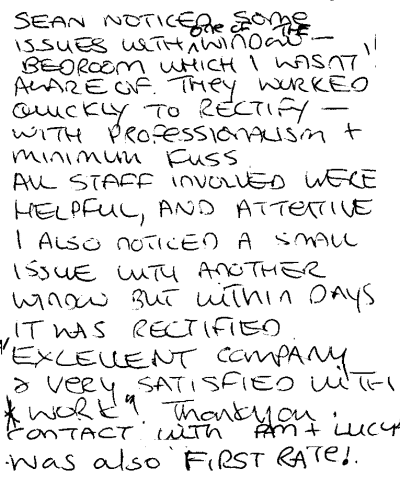 SEAN NOTICED SOME
ISSUES WITH one of THE WINDOW –
BEDROOM WHICH I WASNT
AWARE OF. THEY WORKED
QUICKLY TO RECTIFY –
WITH PROFESSIONALISM +
MINIMUM FUSS
ALL STAFF INVOLVED WERE
HELPFUL, AND ATTETIVE
I ALSO NOTICED A SMALL
ISSUE WITH ANOTHER
WINDOW BUT WITHIN DAYS
IT WAS RECTIFIED
"EXCELLENT COMPANY
& VERY SATISFIED WITH
* WORK". Thankyou.
CONTACT WITH PAM + LUCY
WAS also FIRST RATE!.